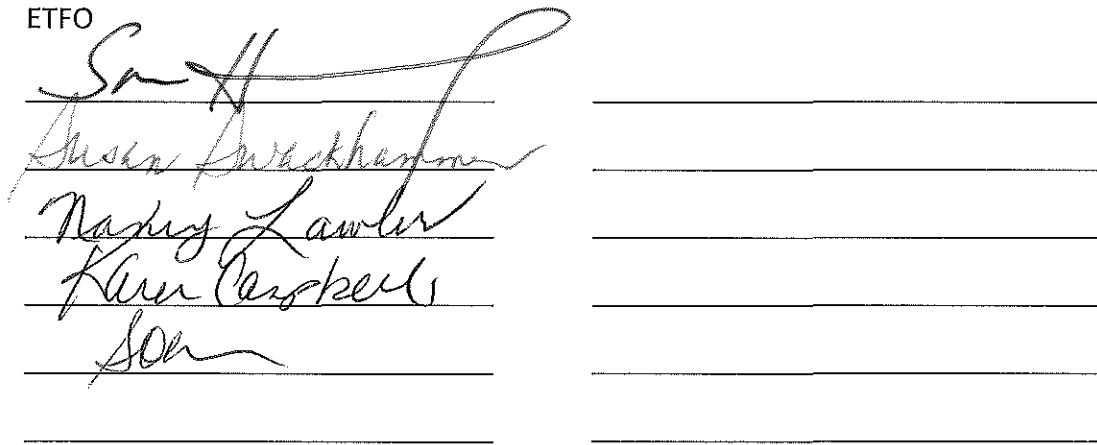 ETFO
Sam H
Susan Swackhammer
Nancy Lawler
Karen Campbell